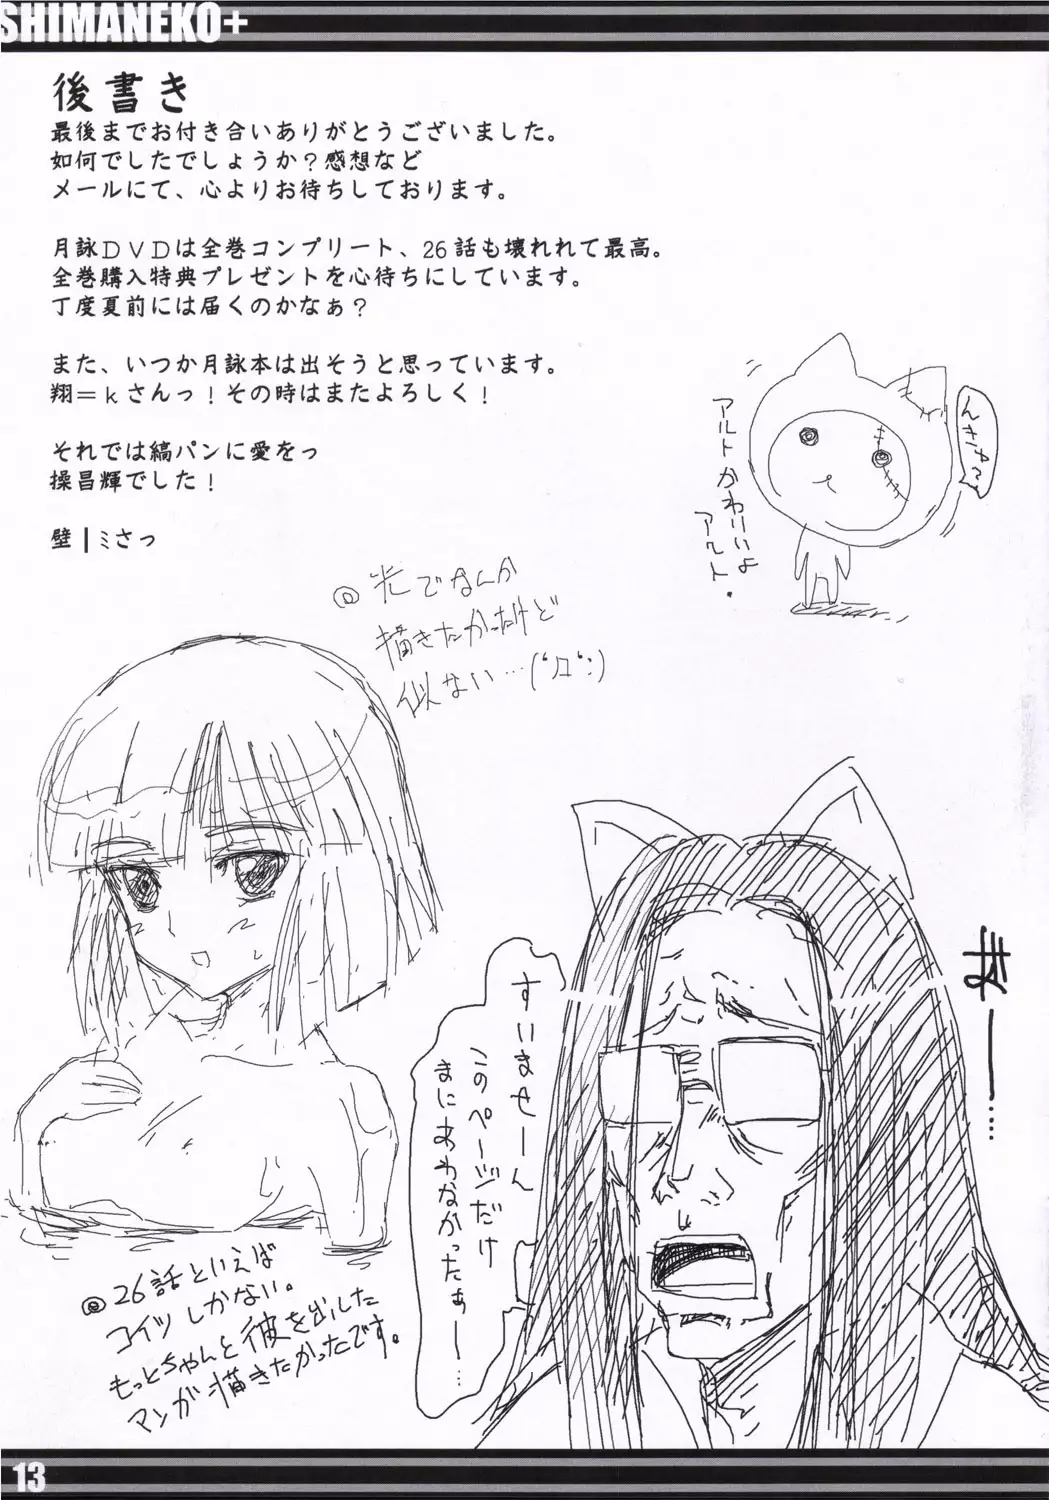 SHIMANEKO+
後書き
最後までお付き合いありがとうございました。
如何でしたでしょうか？感想など
メールにて、心よりお待ちしております。
月詠ＤＶＤは全巻コンプリート、26話も壊れれて最高。
全巻購入特典プレゼントを心待ちにしています。
丁度夏前には届くのかなぁ？
また、いつか月詠本は出そうと思っています。
翔＝ｋさんっ！その時はまたよろしく！
それでは縞パンに愛をっ
操昌輝でした！
壁┃ﾐさっ
アルトかわいいよ
アルト．
@光でなんか
描きたかったけど
似ない…('Д`;)
まー……
すいませーん
このページだけ
まにあわなかったぁー…
@26話といえば
コイツしかない。
もっとちゃんと彼を出した
マンガ描きたかったです。
13